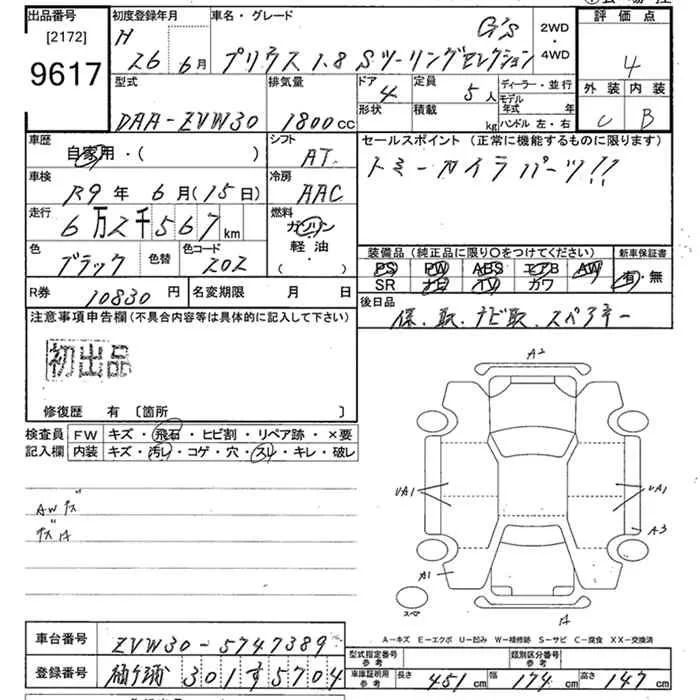 出品番号 初度登録年月 車名・グレード 評価点
[2172] H G's 2WD
9617 26年6月 プリウス 1.8 Sツーリングセレクション 4WD 4
型式 排気量 ドア 定員 ディーラー・並行 外装 内装
4 5人 モデル年式 年
DAA-ZVW30 1800cc 形状 積載 kg ハンドル 左・右 C B
車歴 シフト セールスポイント (正常に機能するものに限ります)
自家用・( ) AT トミーカイラパーツ!!
車検 冷房
R9年6月(15日) AAC
走行 燃料
6万2千567km ガソリン
色 色替 色コード 軽油 装備品 (純正品に限り〇をつけてください) 新車保証書
ブラック 202 ( ・ ) PS PW ABS エアB AW 有・無
SR ナビ TV カワ
R券 10830円 名変期限 月 日 後日品
注意事項申告欄(不具合内容等は具体的に記入して下さい) 保、取、ナビ取、スペアキー
初出品
A2
修復歴 有 [箇所 ]
検査員 FW キズ・飛石・ヒビ割・リペア跡・×要
記入欄 内装 キズ・汚レ・コゲ・穴・スレ・キレ・破レ
UA1 UA1
AWキズ
A3
A1
スペア
A-キズ E-エクボ U-凹み W-補修跡 S-サビ C-腐食 XX-交換済
車台番号 ZVW30-5747389 型式指定番号 参考 類別区分番号 参考
登録番号 301す5704 車庫証明用 参考 長さ 451cm 幅 174cm 高さ 147cm